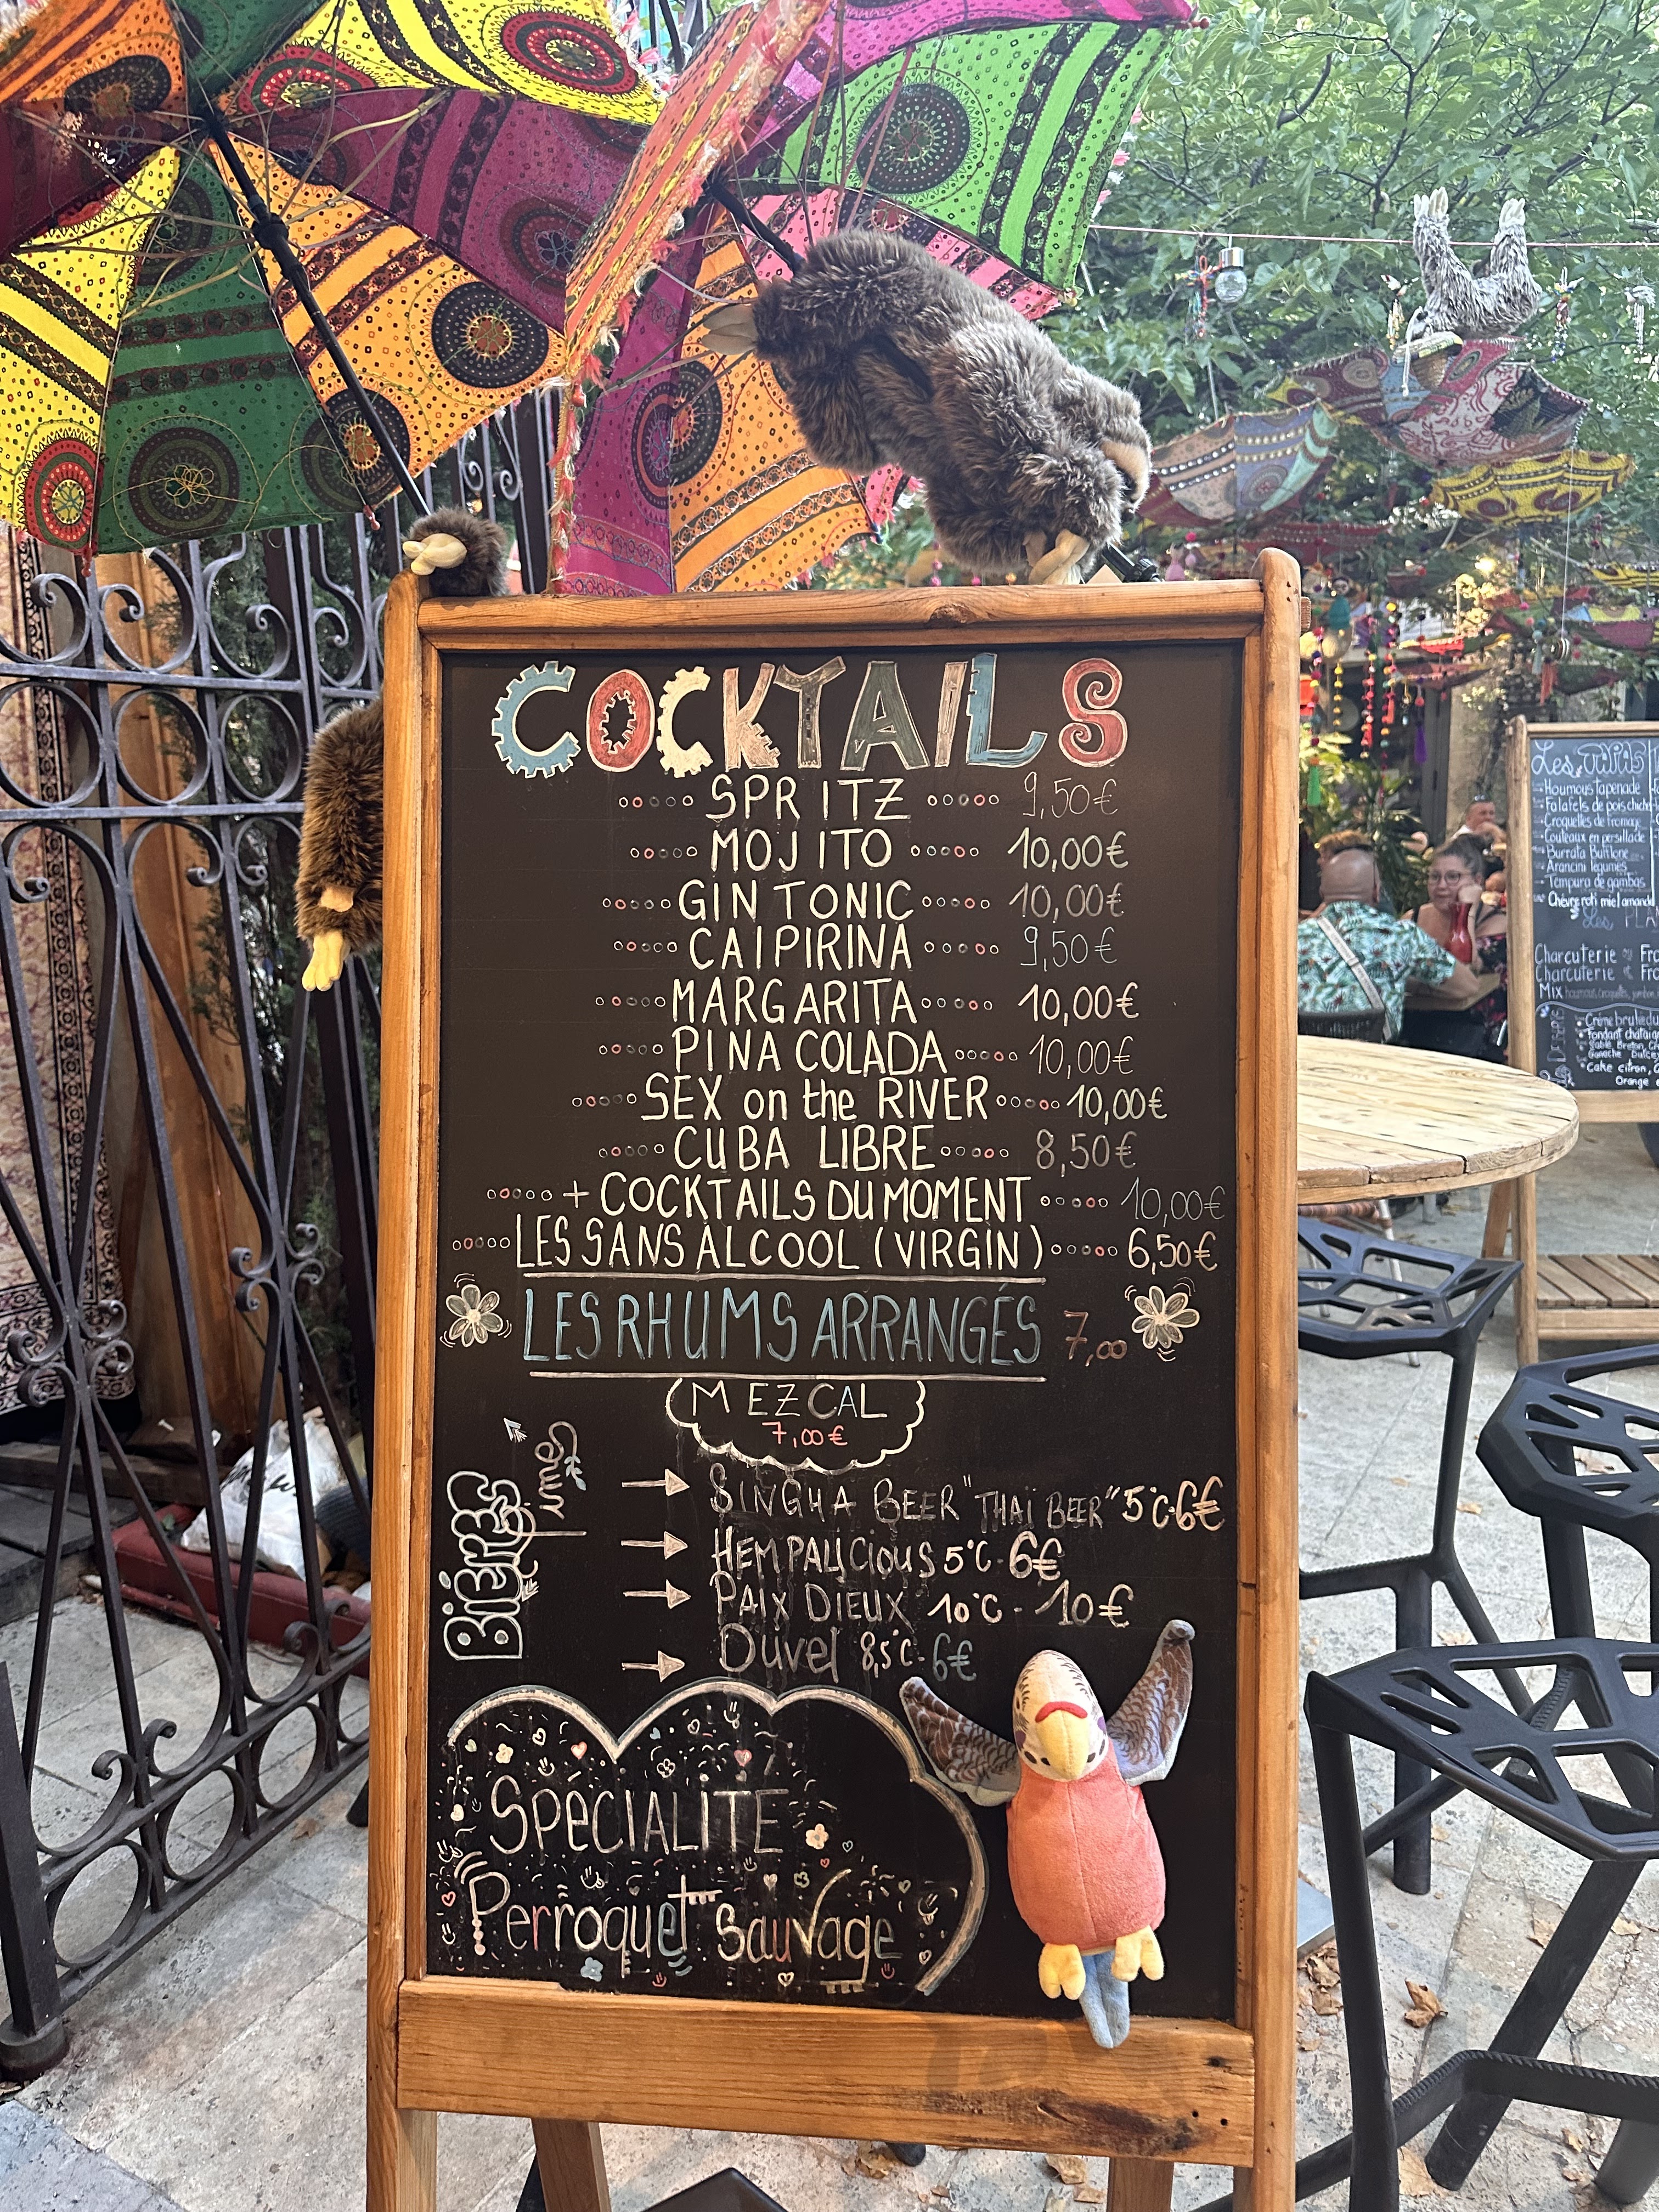 COCKTAILS
SPRITZ 9,50€
MOJITO 10,00€
GIN TONIC 10,00€
CAIPIRINA 9,50€
MARGARITA 10,00€
PINA COLADA 10,00€
SEX on the RIVER 10,00€
CUBA LIBRE 8,50€
+ COCKTAILS DU MOMENT 10,00€
LES SANS ALCOOL (VIRGIN) 6,50€
LES RHUMS ARRANGÉS 7,00
MEZCAL
7,00€
Bières
SINGHA BEER "THAÏ BEER" 5°C-6€
HEMPALICIOUS 5°C-6€
PAIX DIEUX 10°C-10€
Duvel 8,5°C-6€
SPECIALITE
Perroquet sauvage
Houmous tapenade
Falafels de pois chiche
Croquettes de fromage
Couteaux en persillade
Burrata
Arancini légumes
Tempura de gambas
Chèvre roti miel amand
Les PLA
Charcuterie
Charcuterie
MIX
Crème brulée
Fondant
Sablé Breton
Ganache Dulcey
Cake citron,
Orange